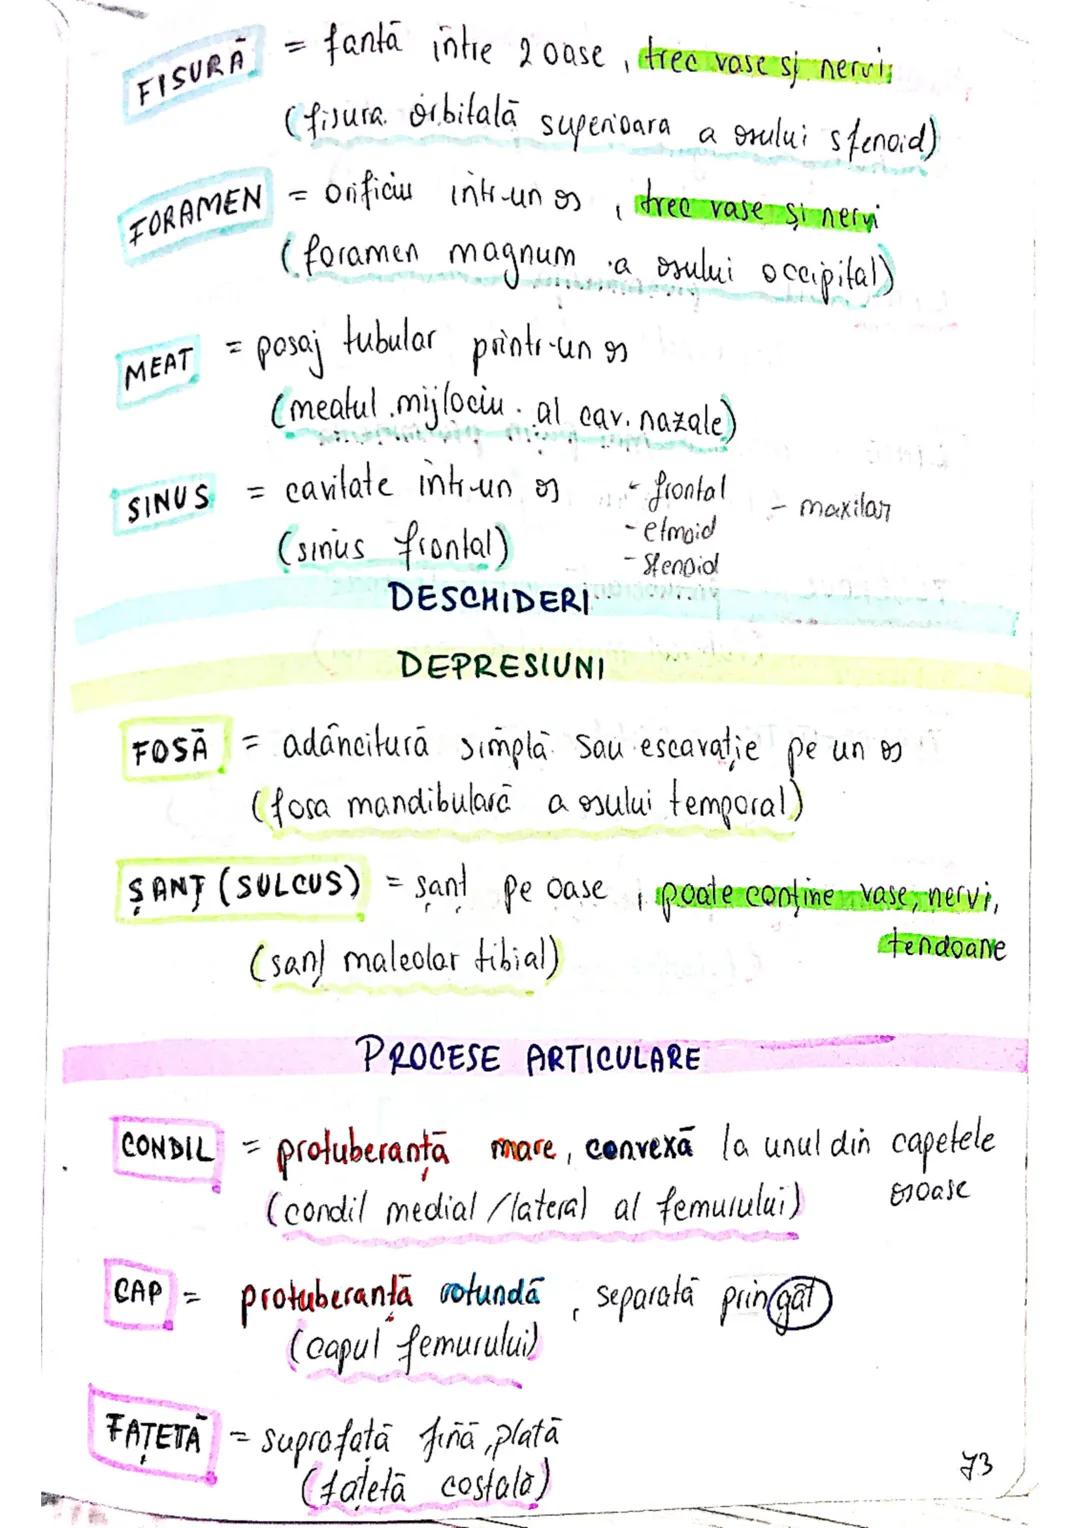 FISURĂ = fantă între 2 oase, trec vase și nervi;
(fisura orbitală superioara a osului sfenoid)
FORAMEN = orificiu într-un os, trec vase și nervi
(foramen magnum a osului occipital)
MEAT = pasaj tubular printr-un os
(meatul mijlociu al cav. nazale)
SINUS = cavitate într-un os - frontal - maxilar
- etmoid
(sinus frontal) - sfenoid
DESCHIDERI
DEPRESIUNI
FOSĂ = adâncitură simplă sau escavație pe un os
(fosa mandibulară a osului temporal)
ȘANȚ (SULCUS) = șanț pe oase, poate conține vase, nervi,
tendoane
(sanț maleolar tibial)
PROCESE ARTICULARE
CONDIL = protuberanță mare, convexă la unul din capetele
osoase
(condil medial/lateral al femurului)
CAP = protuberanță rotundă, separată prin gât
(capul femurului)
FAȚETĂ = suprafață fină, plată
(fațetă costală)
73